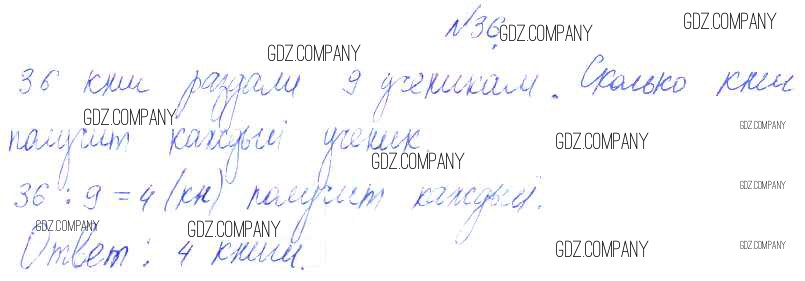 №36.
GDZ.COMPANY
GDZ.COMPANY
GDZ.COMPANY
36 книг раздали 9 ученикам. Сколько книг
GDZ.COMPANY
GDZ.COMPANY
получит каждый ученик
GDZ.COMPANY
GDZ.COMPANY
36 : 9 = 4 (кн) получит каждый.
GDZ.COMPANY
GDZ.COMPANY
GDZ.COMPANY
Ответ: 4 книги.
GDZ.COMPANY
GDZ.COMPANY